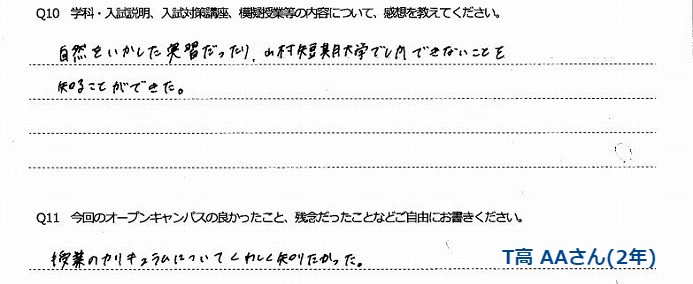 Q10 学科・入試説明、入試対策講座、模擬授業等の内容について、感想を教えてください。
自然をいかした実習だったり、山村短期大学でしかできないことを
知ることができた。
Q11 今回のオープンキャンパスの良かったこと、残念だったことなどご自由にお書きください。
授業のカリキュラムについてくわしく知りたかった。
T高 AAさん(2年)